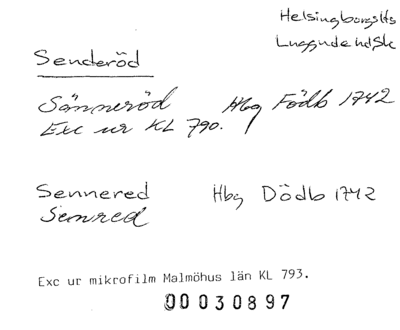 Helsingborgs lfs
Luggude hd Sk
Senderöd
Sänneröd Hbg Födb 1742
Exc ur KL 790.
Sennered Hbg Dödb 1742
Senred
Exc ur mikrofilm Malmöhus län KL 793.
00030897